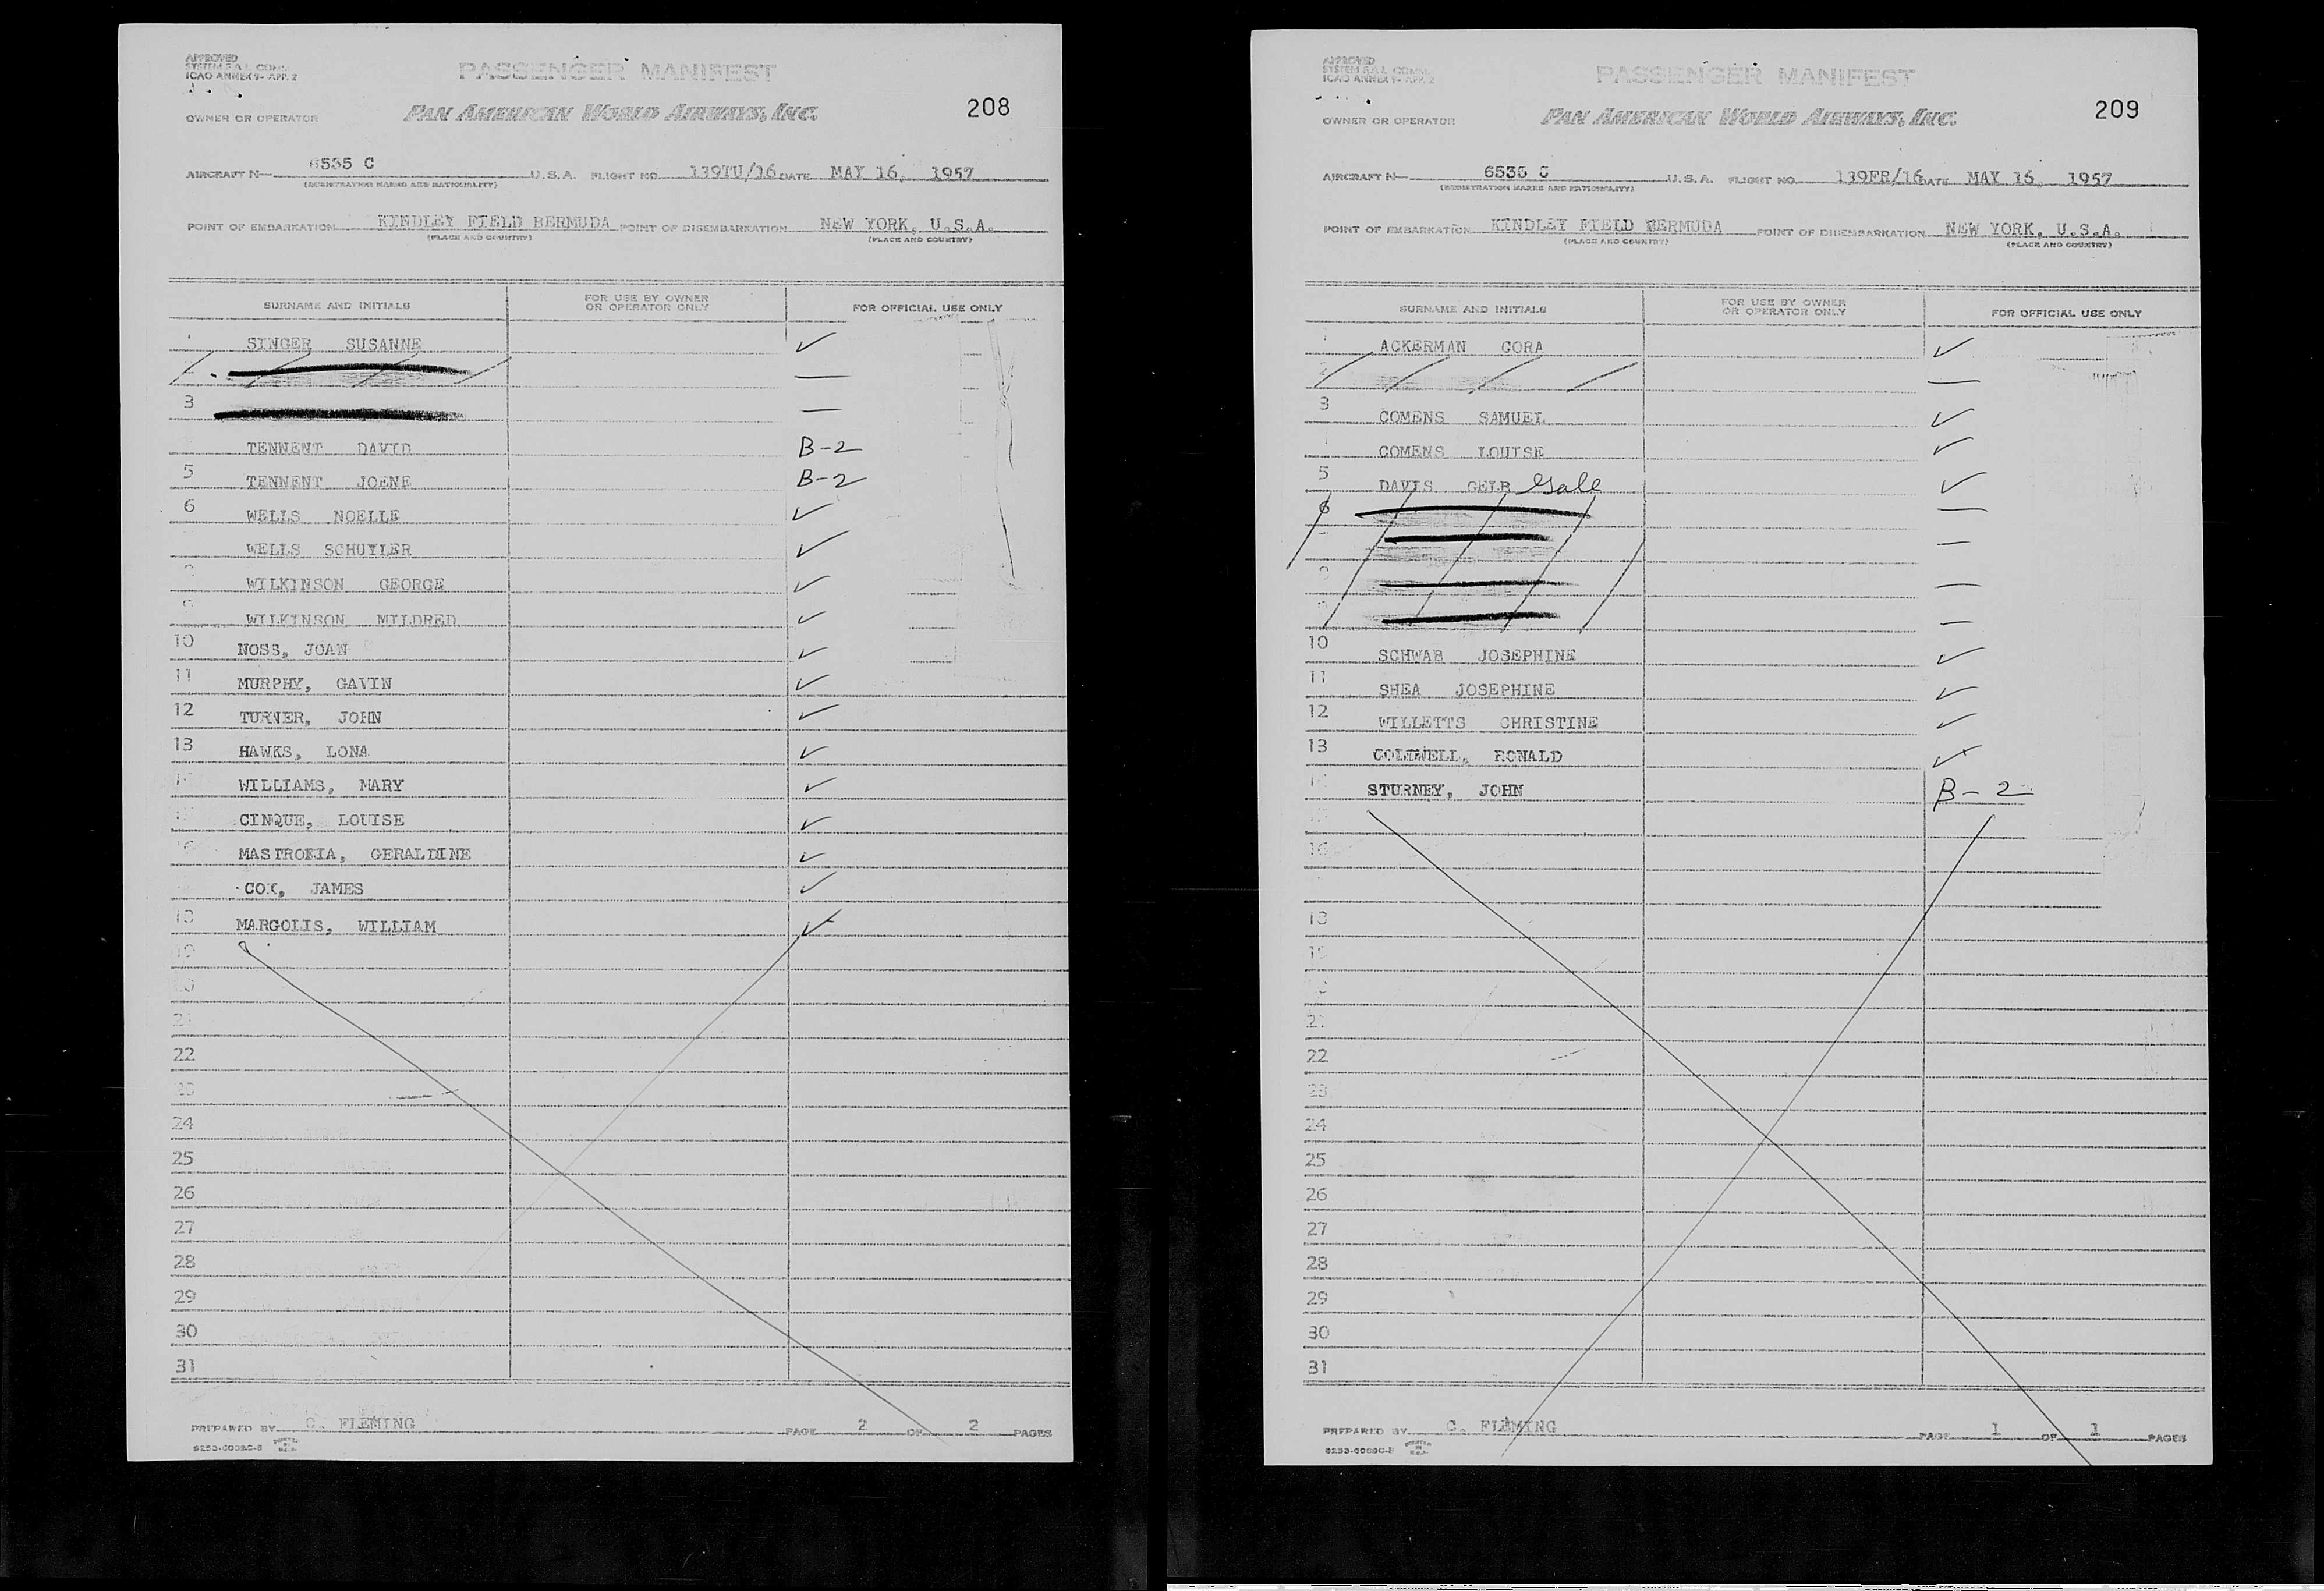 APPROVED
ICAO ANNEX 9- APP. 2
PASSENGER MANIFEST
208
OWNER OR OPERATOR
PAN AMERICAN WORLD AIRWAYS, INC.
AIRCRAFT N— 6535 C U.S.A. FLIGHT NO. 139TU/16 DATE MAY 16, 1957
(REGISTRATION MARKS AND NATIONALITY)
POINT OF EMBARKATION KINDLEY FIELD BERMUDA POINT OF DISEMBARKATION NEW YORK, U.S.A.
(PLACE AND COUNTRY) (PLACE AND COUNTRY)
SURNAME AND INITIALS FOR USE BY OWNER OR OPERATOR ONLY FOR OFFICIAL USE ONLY
SINGER SUSANNE ✓
—
3 —
TENNENT DAVID B-2
5 TENNENT JOENE B-2
6 WELLS NOELLE ✓
WELLS SCHUYLER ✓
WILKINSON GEORGE ✓
WILKINSON MILDRED ✓
10 NOSS, JOAN ✓
11 MURPHY, GAVIN ✓
12 TURNER, JOHN ✓
13 HAWKS, LONA ✓
WILLIAMS, MARY ✓
CINQUE, LOUISE ✓
16 GERALDINE ✓
COX, JAMES ✓
18 MARGOLIS, WILLIAM ✓
19
20
21
22
23
24
25
26
27
28
29
30
31
PREPARED BY C. FLEMING PAGE 2 OF 2 PAGES
APPROVED
ICAO ANNEX 9- APP. 2
PASSENGER MANIFEST
209
OWNER OR OPERATOR
PAN AMERICAN WORLD AIRWAYS, INC.
AIRCRAFT N— 6535 C U.S.A. FLIGHT NO. 139FR/16 DATE MAY 16, 1957
(REGISTRATION MARKS AND NATIONALITY)
POINT OF EMBARKATION KINDLEY FIELD BERMUDA POINT OF DISEMBARKATION NEW YORK, U.S.A.
(PLACE AND COUNTRY) (PLACE AND COUNTRY)
SURNAME AND INITIALS FOR USE BY OWNER OR OPERATOR ONLY FOR OFFICIAL USE ONLY
1 ACKERMAN CORA ✓
2 —
3 COMENS SAMUEL ✓
COMENS LOUISE ✓
5 DAVIS GELB Gale ✓
6 —
—
8 —
9 —
10 SCHWAB JOSEPHINE ✓
11 SHEA JOSEPHINE ✓
12 WILLETTS CHRISTINE ✓
13 RONALD ✓
STURNEY, JOHN B-2
16
18
19
21
22
23
24
25
26
27
28
29
30
31
PREPARED BY C. FLEMING PAGE 1 OF 1 PAGES